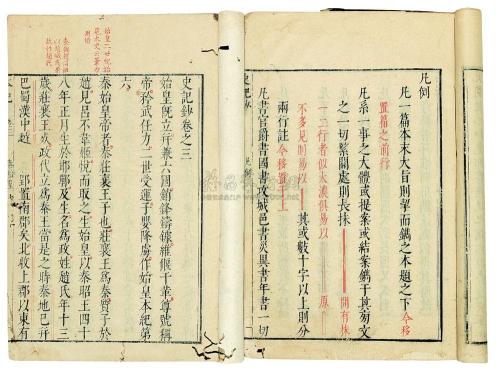 凡例
凡一篇本末大旨則挈而鐫之本題之下今移
置篇之前行
凡系一事之大體或提案或結案鐫于其旁文
之一切緊關處則長抹 間有抹
一二行者似太濃俱易以 原
不多見則易以 其或數十字以上則分
兩行註今移置 上
凡書官爵書國書攻城邑書災異書年書一切
史記鈔
史記鈔卷之三
始皇既立并兼六國銷鋒鑄鐻維偃干革尊號稱
帝矜武任力二世受運子嬰降虜作始皇本紀第
六
秦始皇帝者秦莊襄王子也莊襄王爲秦質子於
趙見呂不韋姬悅而取之生始皇以秦昭王四十
八年正月生於邯鄲及生名爲政姓趙氏年十三
歲莊襄王死政代立爲秦王當是之時秦地已并
巴蜀漢中越 郢置南郡矣北收上郡以東有